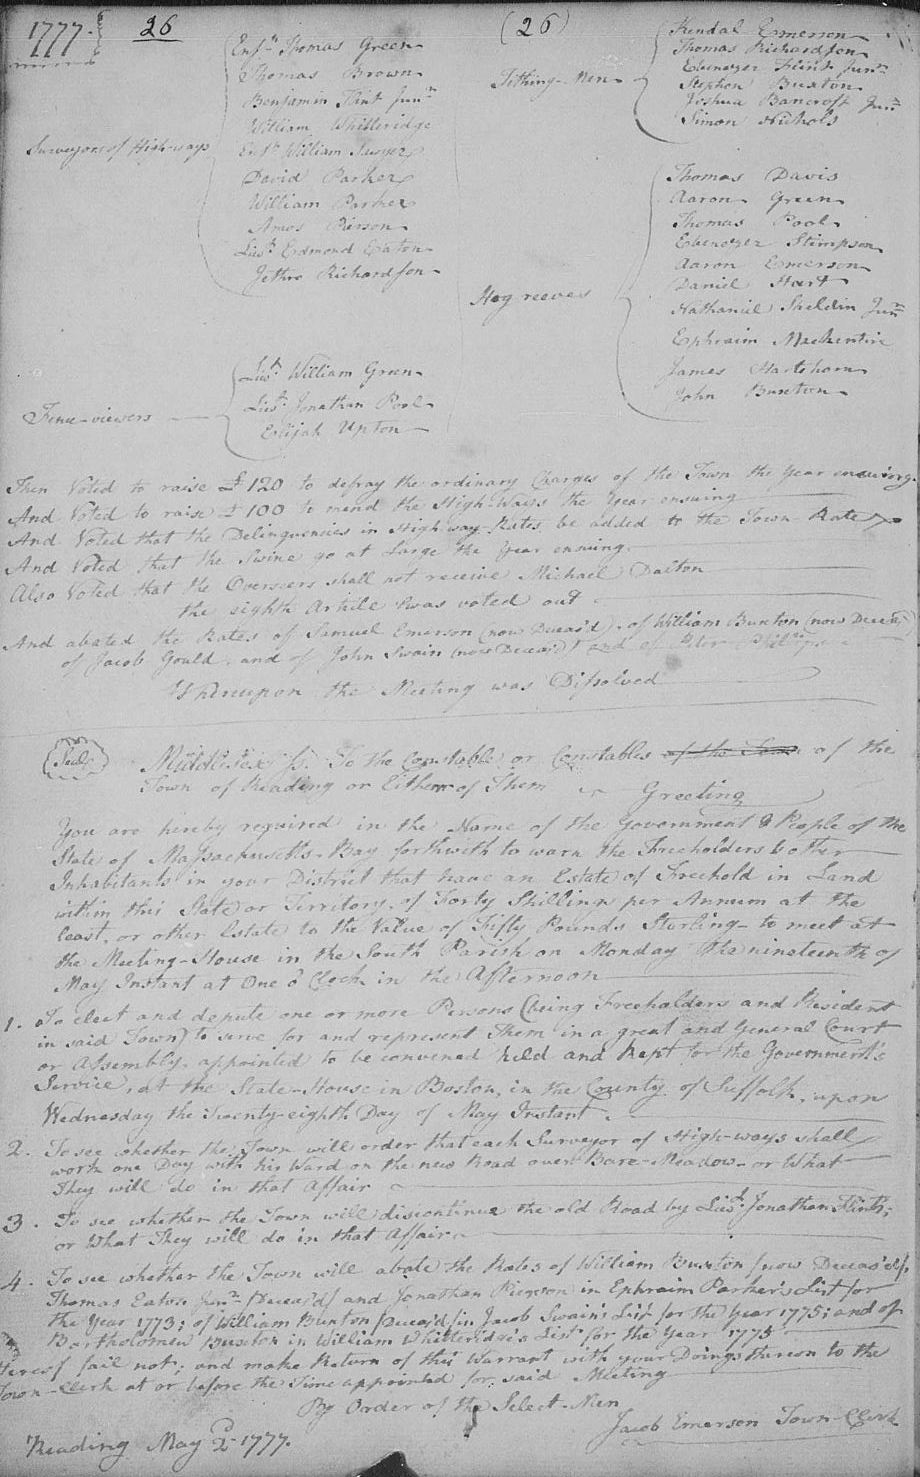 1777.
26
(26)
Surveyors of High-ways
Ensn Thomas Green
Thomas Brown
Benjamin Flint Junr
William Whittridge
Ensn William Sawyer
David Parker
William Parker
Amos Pierson
Lieut Edmond Eaton
Jethro Richardson
Fence-viewers
Lieut William Green
Lieut Jonathan Pool
Elijah Upton
Tithing-Men
Kendal Emerson
Thomas Richardson
Ebenezer Flint Junr
Stephen Buxton
Joshua Bancroft Junr
Simon Nichols
Hog reeves
Thomas Davis
Aaron Green
Thomas Pool
Ebenezer Stimpson
Aaron Emerson
Daniel Hart
Nathaniel Sheldin Junr
Ephraim Mackintire
James Hartshorn
John Buxton
Then Voted to raise £120 to defray the ordinary Charges of the Town the Year ensuing.
And Voted to raise £100 to mend the High-Ways the Year ensuing
And Voted that the Delinquencies in High-way Rates be added to the Town-Rate
And Voted that the Swine go at Large the Year ensuing.
Also Voted that the Overseers shall not receive Michael Dalton
the eighth Article was voted out
And abated the Rates of Samuel Emerson (now Deceas'd), of William Buxton (now Deceas'd)
of Jacob Gould, and of John Swain (now Deceas'd) and of Peter
Whereupon the Meeting was Dissolved
Seal
Middlesex Ss. To the Constable or Constables of the Town of the
Town of Reading or Either of Them Greeting
You are hereby required in the Name of the Government & People of the
State of Massachusetts-Bay forthwith to warn the Freeholders & other
Inhabitants in your District that have an Estate of Freehold in Land
within this State or Territory, of Forty Shillings per Annum at the
least, or other Estate to the Value of Fifty Pounds Sterling to meet at
the Meeting-House in the South Parish on Monday the nineteenth of
May Instant at One o'Clock in the Afternoon
1. To elect and depute one or more Persons (being Freeholders and Resident
in said Town) to serve for and represent Them in a great and General Court
or Assembly, appointed to be convened held and kept for the Government's
Service, at the State-House in Boston, in the County of Suffolk, upon
Wednesday the Twenty-eighth Day of May Instant.
2. To see whether the Town will order that each Surveyor of High-ways shall
work one Day with his Ward on the new Road over Bare-Meadow or What
They will do in that Affair
3. To see whether the Town will discontinue the old Road by Lieut Jonathan Flint's;
or What They will do in that Affair
4. To see whether the Town will abate the Rates of William Buxton (now Deceas'd),
Thomas Eaton Junr (Deceas'd) and Jonathan Pierson in Ephraim Parker's List for
the Year 1773; of William Buxton (Deceas'd) in Jacob Swain's List for the Year 1775; and of
Bartholomew Buxton in William Whittredge's List for the Year 1775
Hereof fail not; and make Return of this Warrant with your Doings thereon to the
Town-Clerk at or before the Time appointed for said Meeting
By Order of the Select-Men
Jacob Emerson Town-Clerk
Reading May 2d 1777.